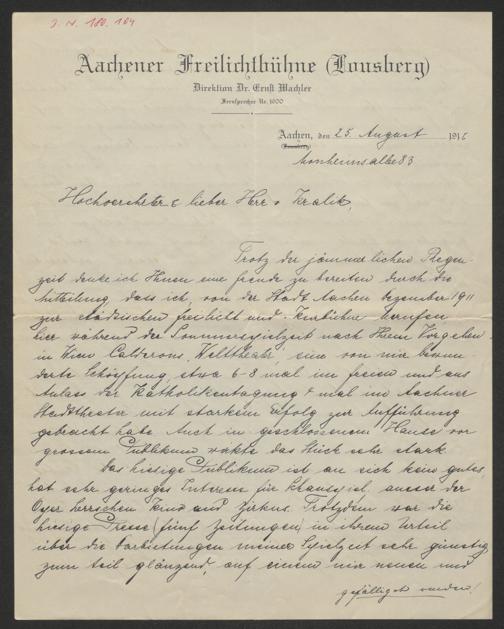 J. N. 180.104
Aachener Freilichtbühne (Lousberg)
Direktion Dr. Ernst Wachler
Fernsprecher Nr. 1600
Aachen, den 25. August 191
(Lousberg)
Monheimsallee 83
Hochverehrter & lieber Herr v Kralik,
Trotz der jämmerlichen Regen-
zeit denke ich Ihnen eine Freude zu bereiten durch die
Mitteilung, dass ich, von der Stadt Aachen Dezember 1911
zur städtischen Freilicht und berufen
hier während der Sommerspielzeit nach Ihrem Vorgehen
in Wien Calderons "Welttheater", eine von mir bewun-
derte Schöpfung, etwa 6-8 mal im freien und aus
Anlass der Katholikentagung mal im Aachener
Stadttheater mit starkem Erfolg zur Aufführung
gebracht habe. Auch in geschlossenem Hause vor
grossem Publikum wirkte das Stück sehr stark.
Das hiesige Publikum ist an sich kein gutes,
hat sehr geringes Interesse für ausser der
Oper herrschen Kino und Zirkus. Trotzdem war die
hiesige Presse (fünf Zeitungen) in ihrem Urteil
über die Darbietungen meiner Spielzeit sehr günstig
zum teil glänzend, auf einem mir neuen und
gefälligst wenden!